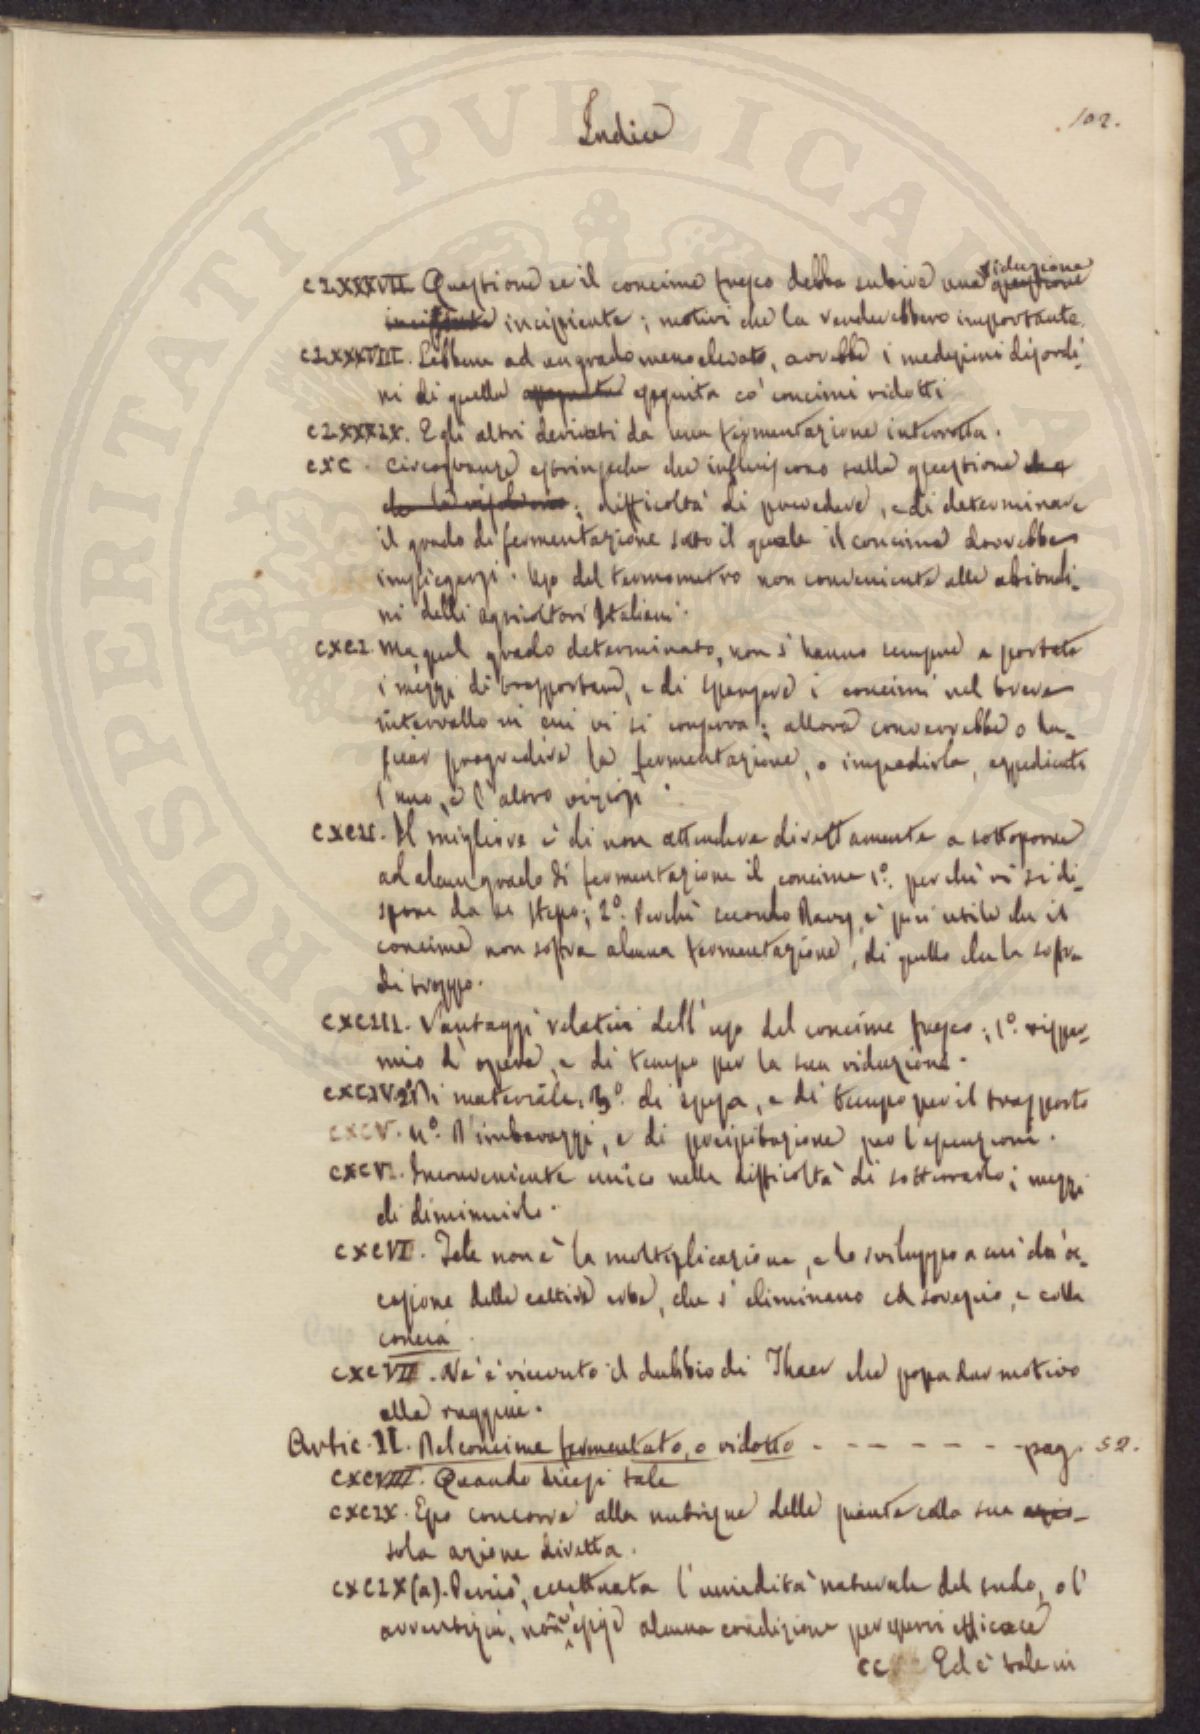 102.
Indice
CLXXXVII Questione se il concime fresco debba subire una riduzione questione
incipiente incipiente; motivi che la renderebbero importante.
CLXXXVIII. Sebbene ad un grado meno elevato, avrebbe i medesimi disordi-
ni di quella eseguita co' concimi ridotti
CLXXXIX. E gli altri derivati da una fermentazione interrotta.
CXC. Circostanze estrinseche che influiscono sulla questione che
che la; difficoltà di procedere, e di determinare
il grado di fermentazione sotto il quale il concime dovrebbe
impiegarsi. Uso del termometro non conveniente alle abitudi-
ni delli agricoltori Italiani.
CXCI. Ma, quel grado determinato, non s'hanno sempre a portata
i mezzi di trasportare, e di spargere i concimi nel breve
intervallo in cui vi si conserva; allora converrebbe o la-
sciar progredire la fermentazione, o impedirla, espedienti
l'uno, e l'altro viziosi.
CXCII. Il migliore è di non attendere direttamente a sottoporre
ad alcun grado di fermentazione il concime 1.º perchè vi si di-
spone da se stesso; 2.º Perchè secondo Davy, è più utile che il
concime non soffra alcuna fermentazione, di quello che la soffra
di troppo.
CXCIII. Vantaggi relativi dell'uso del concime fresco; 1.º rispar-
mio d'opera, e di tempo per la sua riduzione.
CXCIV. 2.º Di materiale. 3.º di spesa, e di tempo per il trasporto
CXCV. 4.º D'imbarazzi, e di precipitazione per l'operazioni.
CXCVI. Inconveniente unico nella difficoltà di sotterrarlo; mezzi
di diminuirlo.
CXCVI. Tale non è la moltiplicazione, e lo sviluppo a cui dà oc-
casione delle cattive erbe, che s'eliminano col sovescio, e colla
concia.
CXCVII. Nè è ricevuto il dubbio di Thaer che possa dar motivo
alla ruggine.
Artic. II. Del concime fermentato, o ridotto - - - - - - - pag. 52.
CXCVIII. Quando dicesi tale
CXCIX. Esso concorre alla nutrizione delle piante colla sua azio-
sola azione diretta.
CXCIX(a). Perciò, eccettuata l'umidità naturale del suolo, o l'
avventizia, non esige alcuna condizione per essere efficace
CC Ed è tale in